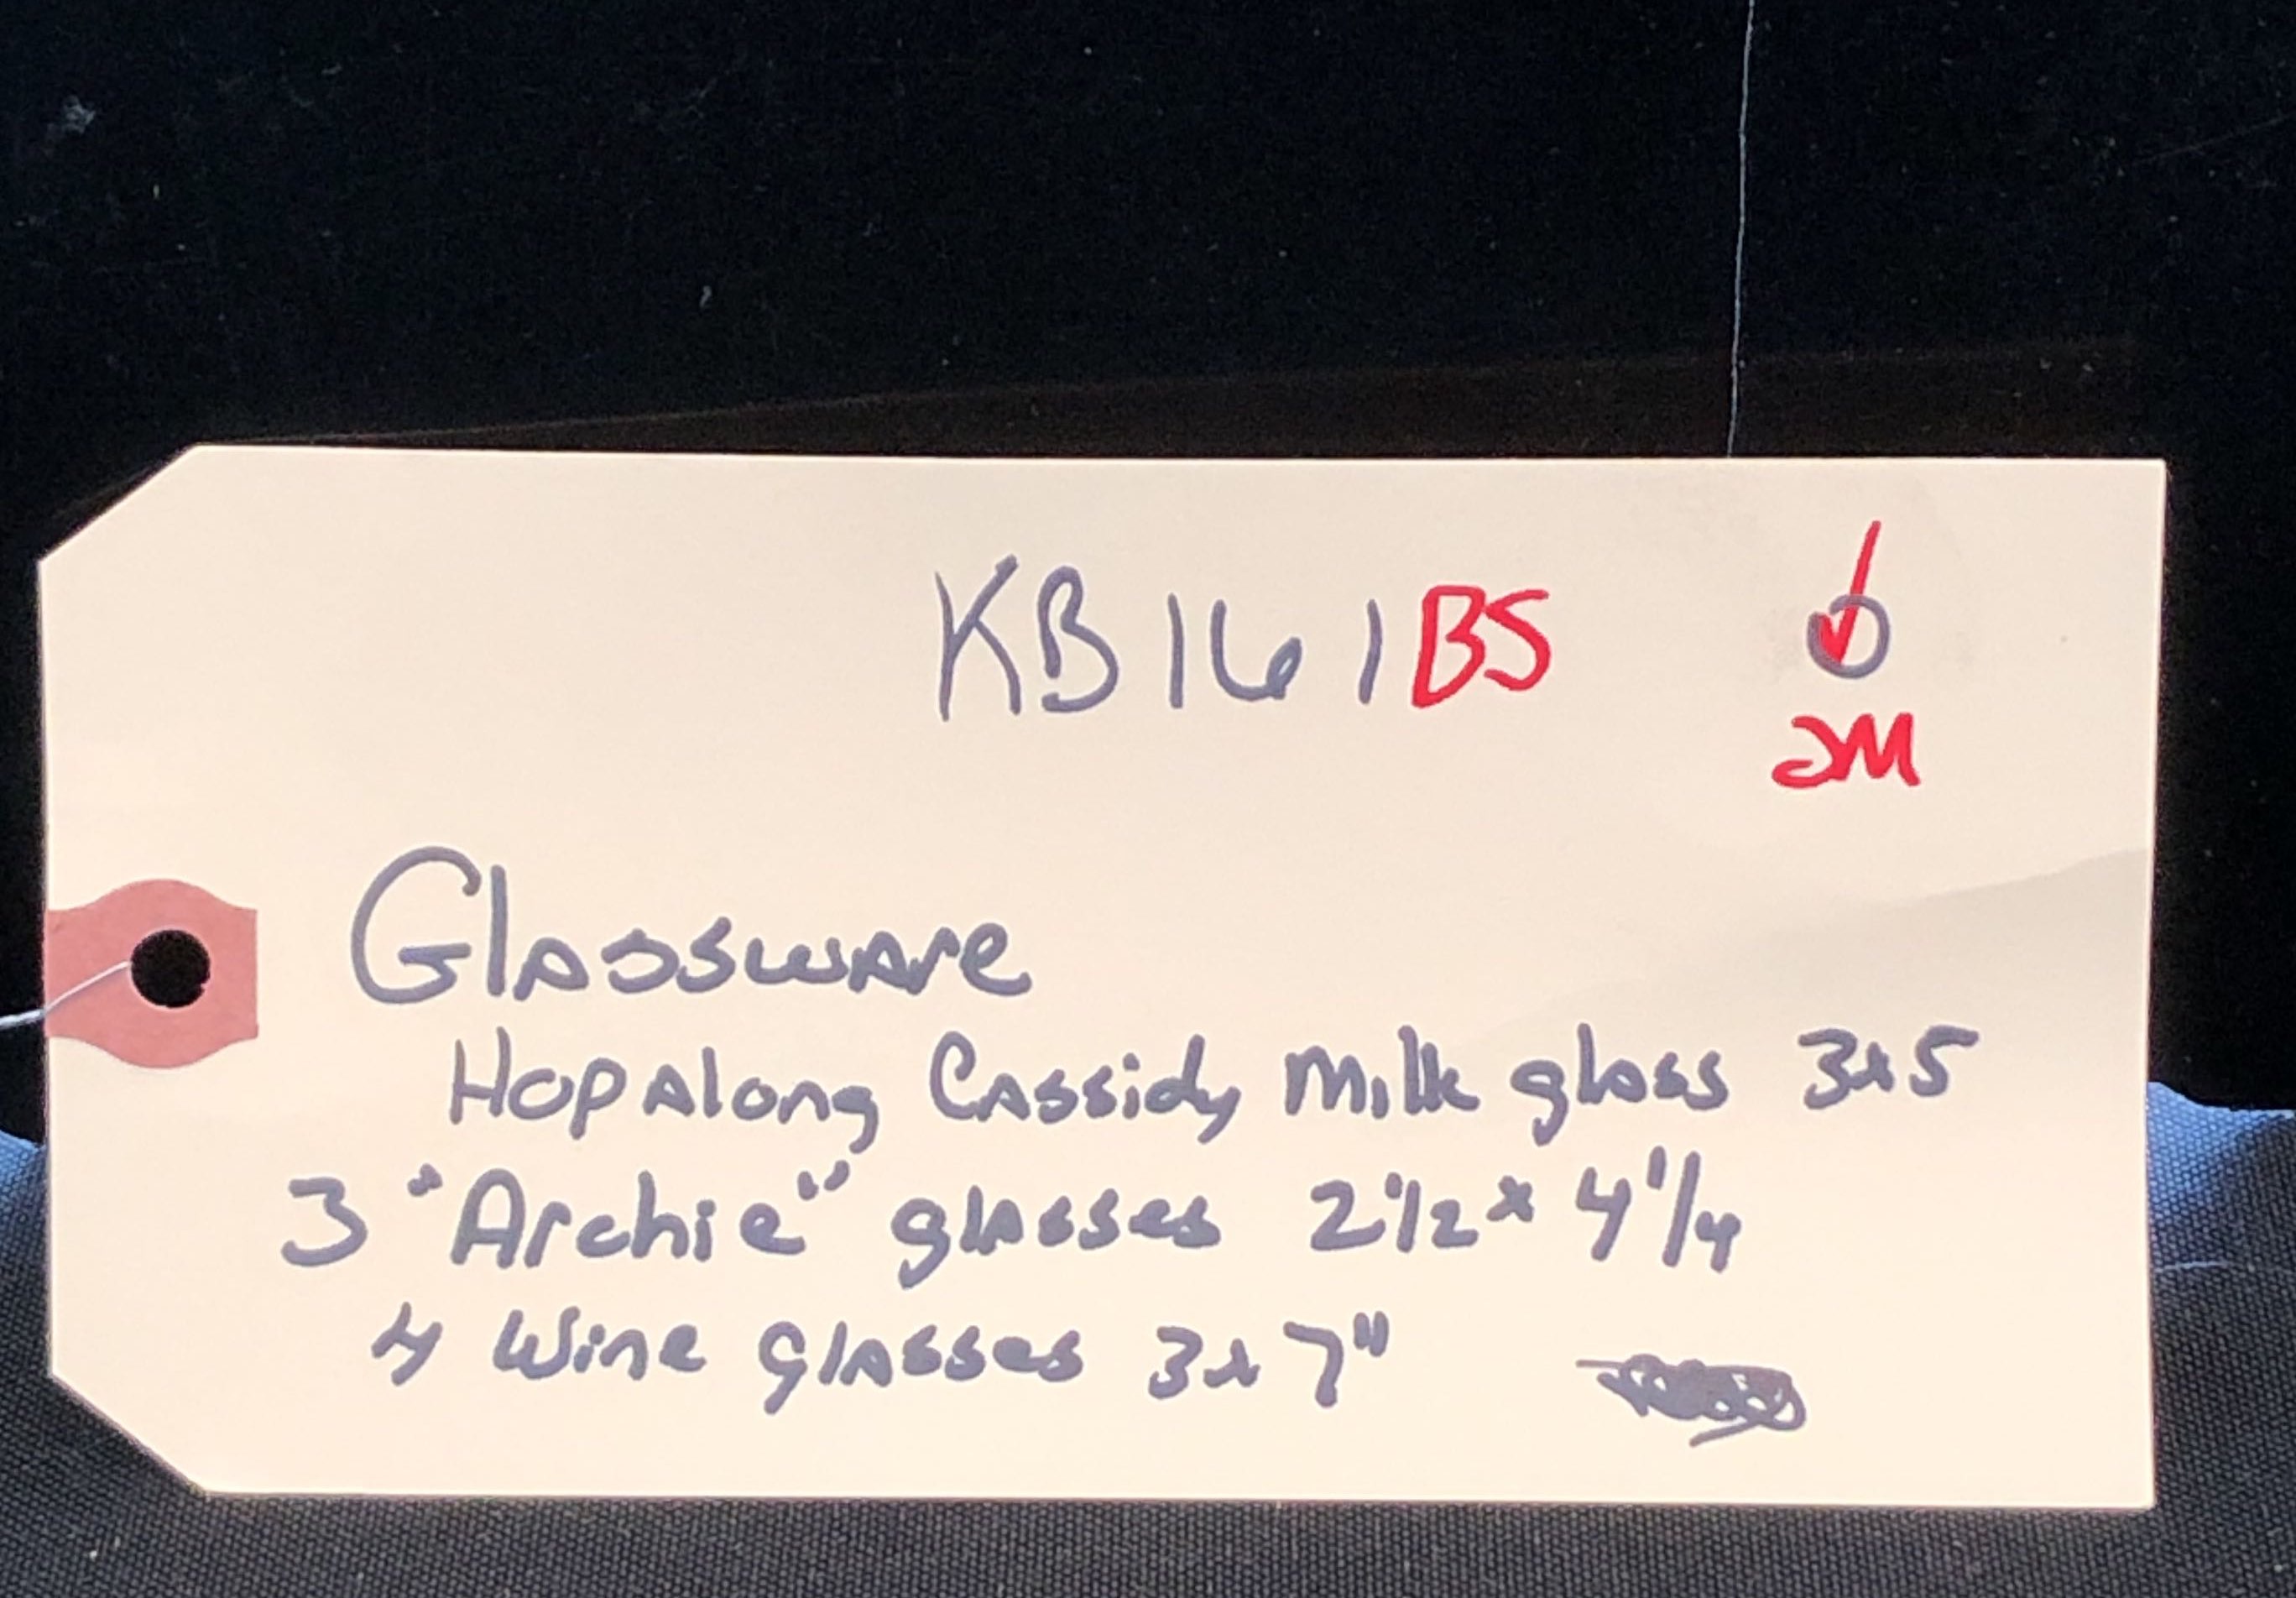 KB161BS
JM
Glassware
HopAlong Cassidy Milk glass 3x5
3 "Archie" glasses 2 1/2 x 4 1/4
4 Wine glasses 3x7"